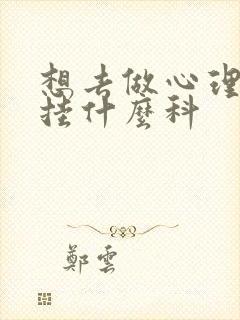 想去做心理
挂什麼科
鄭雲